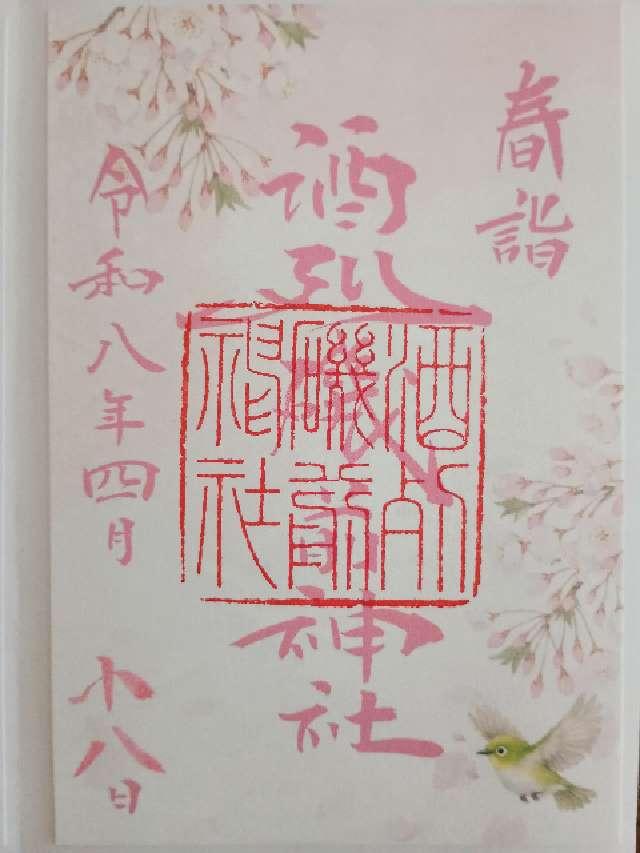 春詣
酒列磯前神社
酒列
磯前
神社
令和八年四月廿八日